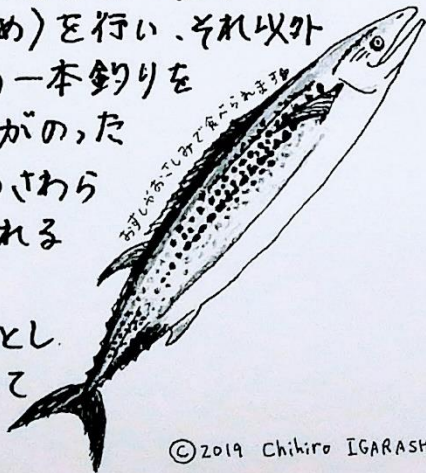 め)を行い、それ以外
一本釣りを
がのった
さわら
れる
とし
て
おすしやおさしみで食べられます
©2019 Chihiro IGARASH